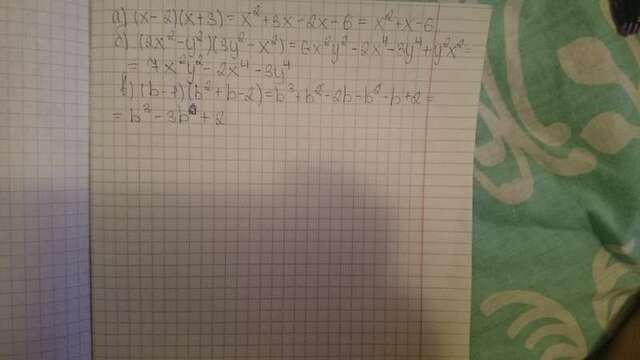 а) (x-2)(x+3)=x²+3x-2x-6=x²+x-6
б) (2x²-y²)(3y²-x²)=6x²y²-2x⁴-3y⁴+y²x²=
=7x²y²-2x⁴-3y⁴
в) (b-1)(b²+b-2)=b³+b²-2b-b²-b+2=
=b³-3b+2